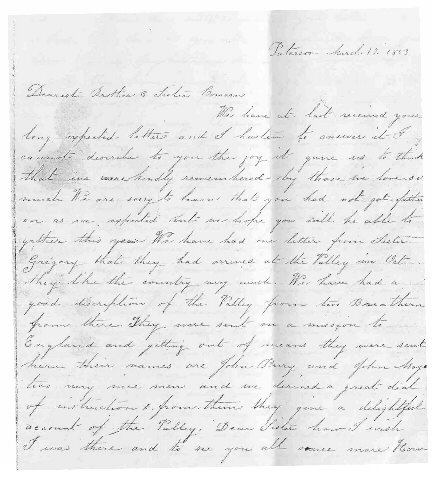 Paterson March 17. 1853
Dearest Brother & Sister
We have at last recieved your
long expected letter and I hasten to answer it I
cannot describe to you the joy it gave us to think
that we were kindly remembered by those we love so
much We are sorry to learn that you had not got farther
on as we expected but we hope you will be able to
gather this year We have had one letter from Sister
Gregory that they had arrived at the Valley in Oct
they like the country very much. We have had a
good discription of the Valley from two Breathern
from there. They were sent on a mission to
England and getting out of means they were sent
here their names are John Perry and John
two very nice men and we derived a great deal
of instruction from them they give a delightful
account of the Valley. Dear Sister how I wish
I was there and to see you all once more How